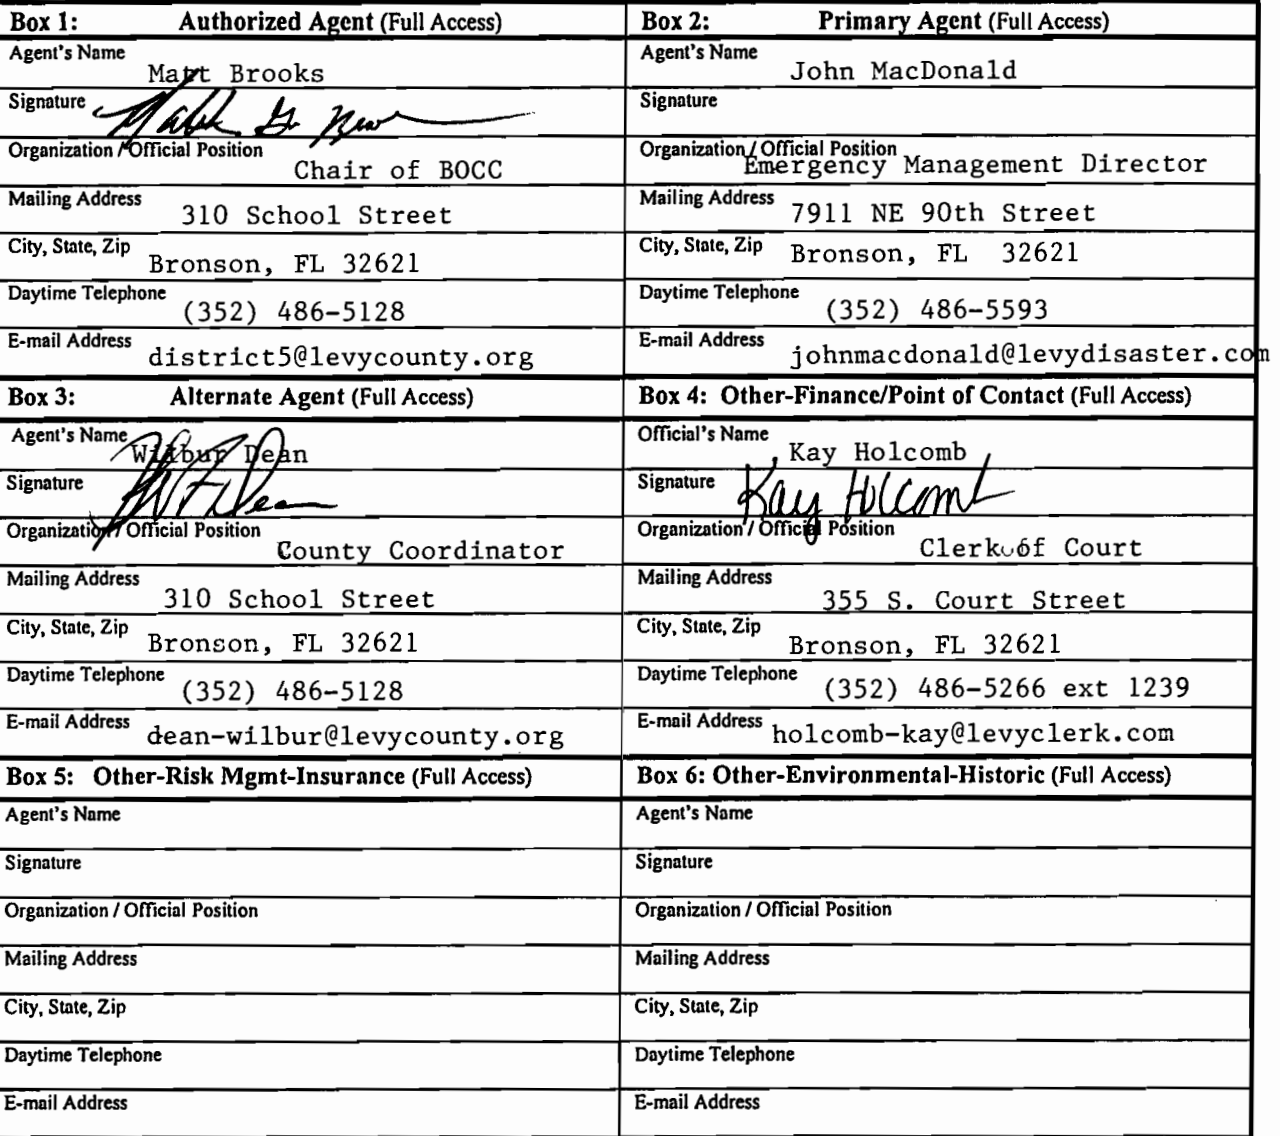 Box 1: Authorized Agent (Full Access)
Agent's Name Matt Brooks
Signature
Organization / Official Position Chair of BOCC
Mailing Address 310 School Street
City, State, Zip Bronson, FL 32621
Daytime Telephone (352) 486-5128
E-mail Address district5@levycounty.org
Box 2: Primary Agent (Full Access)
Agent's Name John MacDonald
Signature
Organization / Official Position Emergency Management Director
Mailing Address 7911 NE 90th Street
City, State, Zip Bronson, FL 32621
Daytime Telephone (352) 486-5593
E-mail Address johnmacdonald@levydisaster.com
Box 3: Alternate Agent (Full Access)
Agent's Name Wilbur Dean
Signature
Organization / Official Position County Coordinator
Mailing Address 310 School Street
City, State, Zip Bronson, FL 32621
Daytime Telephone (352) 486-5128
E-mail Address dean-wilbur@levycounty.org
Box 4: Other-Finance/Point of Contact (Full Access)
Official's Name Kay Holcomb
Signature Kay Holcomb
Organization / Official Position Clerk of Court
Mailing Address 355 S. Court Street
City, State, Zip Bronson, FL 32621
Daytime Telephone (352) 486-5266 ext 1239
E-mail Address holcomb-kay@levyclerk.com
Box 5: Other-Risk Mgmt-Insurance (Full Access)
Agent's Name
Signature
Organization / Official Position
Mailing Address
City, State, Zip
Daytime Telephone
E-mail Address
Box 6: Other-Environmental-Historic (Full Access)
Agent's Name
Signature
Organization / Official Position
Mailing Address
City, State, Zip
Daytime Telephone
E-mail Address